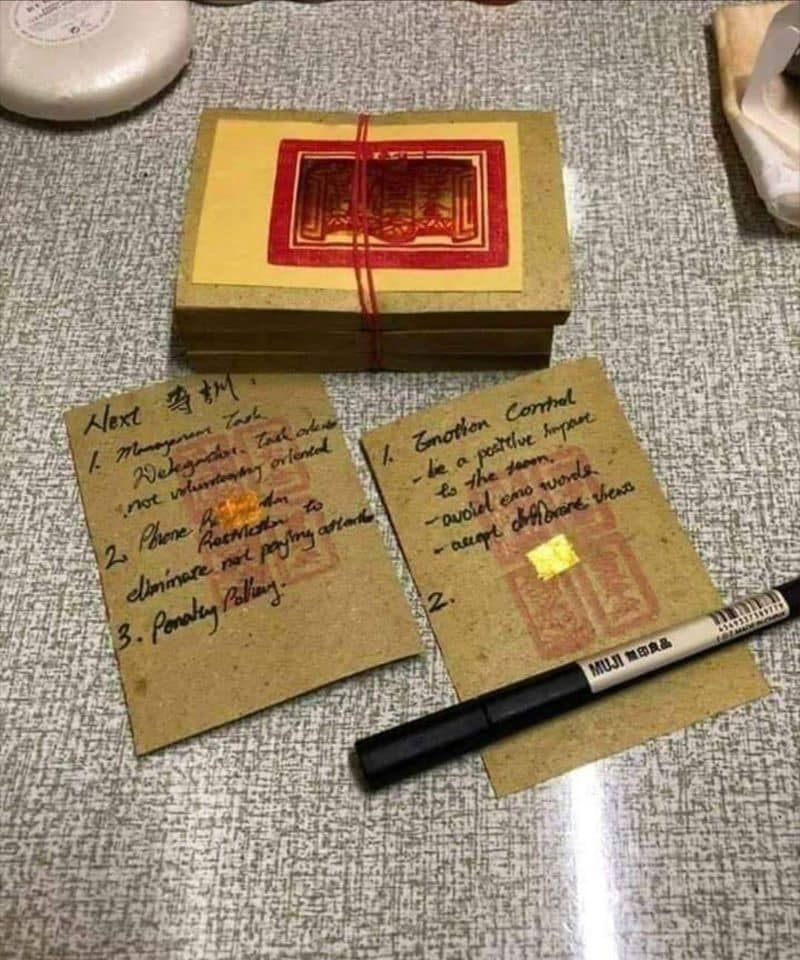 Next
1. Management Task
Delegation. Task oriented
not volunteering oriented
2. Phone
Restriction to
eliminate not paying attention
3. Penalty Policy.
1. Emotion Control
- be a positive impact
to the team.
- avoid emo words
- accept different views
2.
MUJI 無印良品